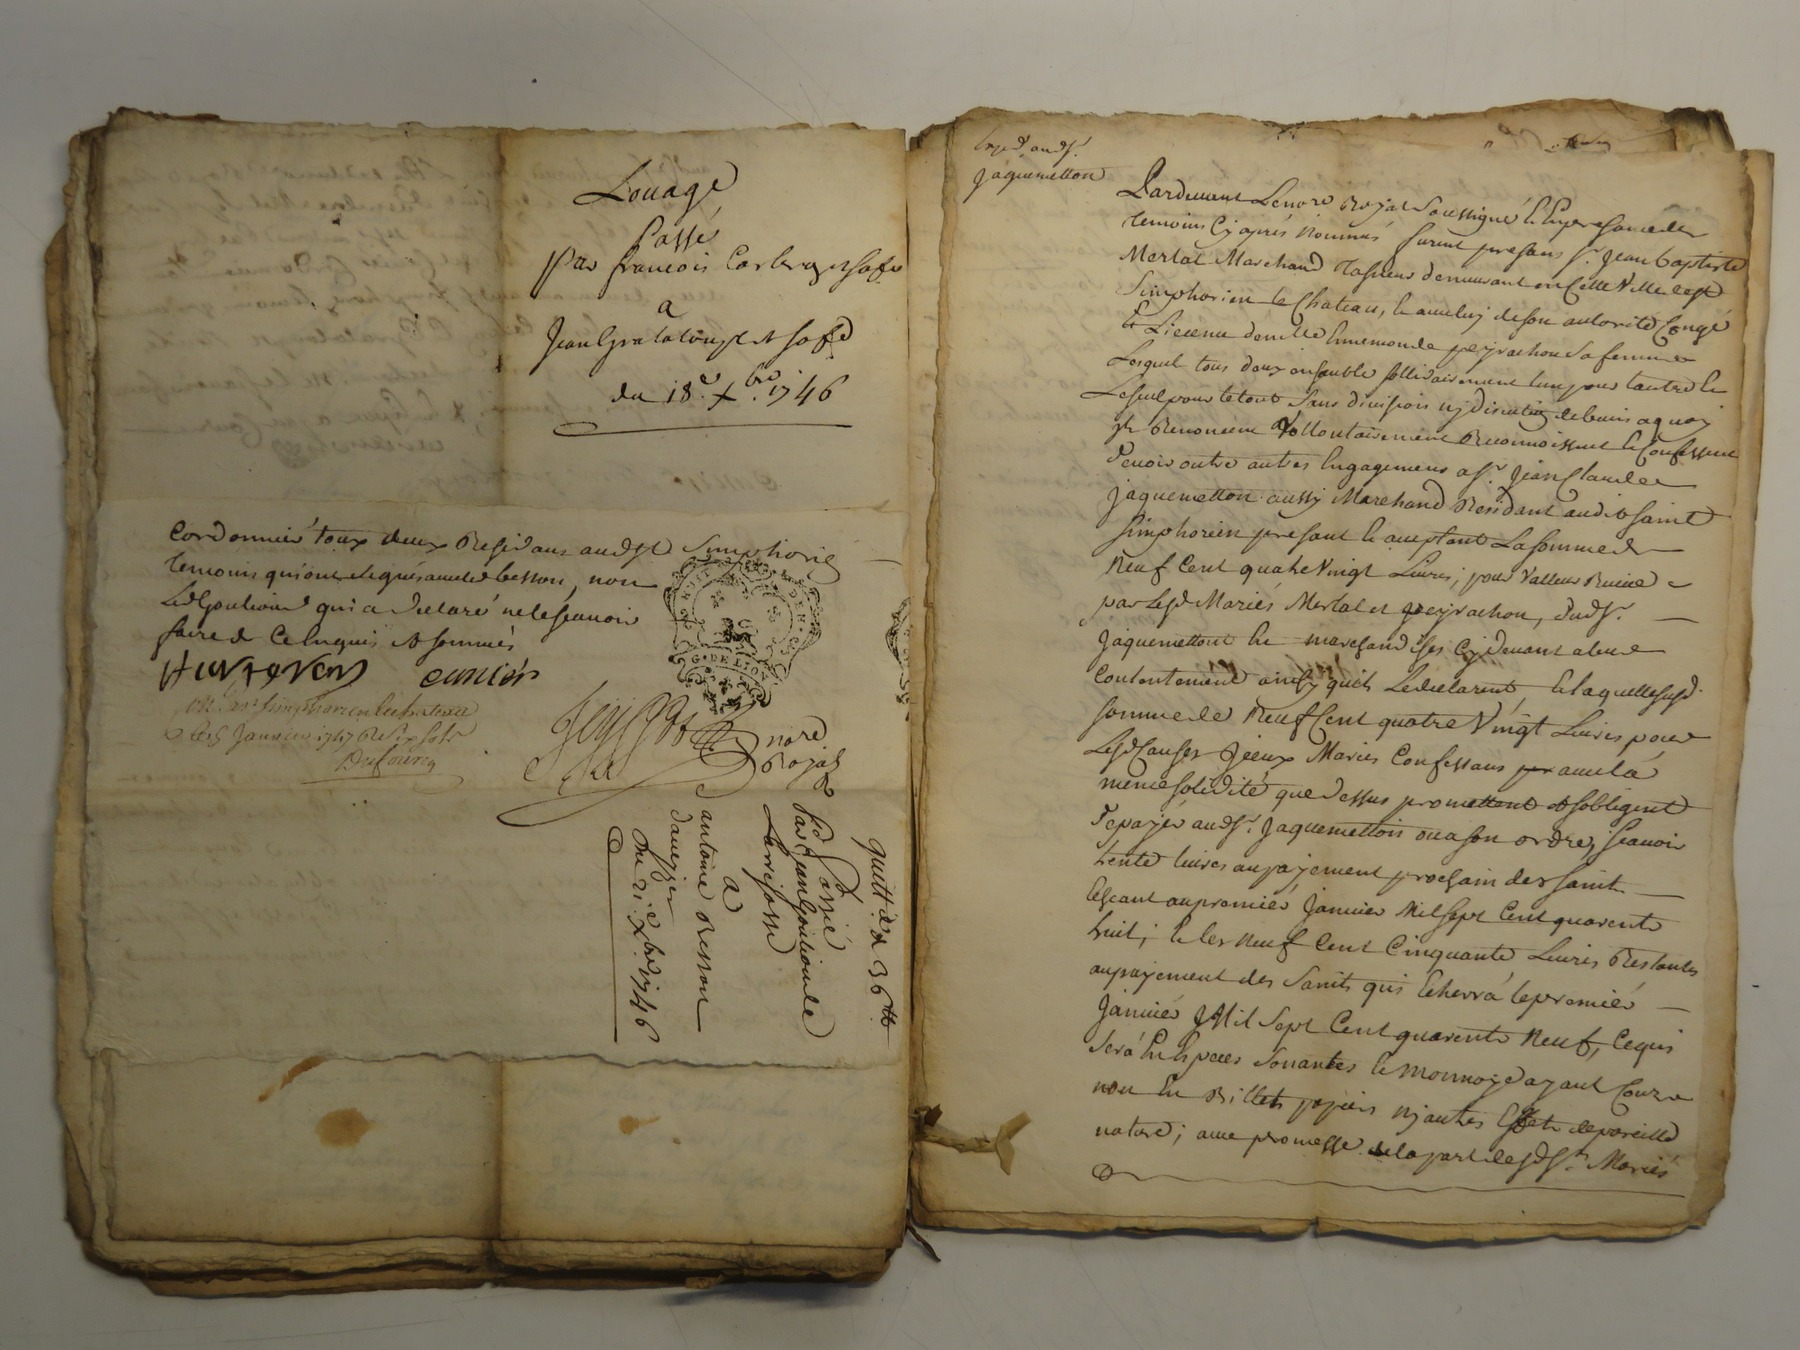 Louage
Passé
Par francois
a
Jean
du 18.e Xbre. 1746
Cordonnier toux deux Residans audst Simphorien
temoins qui ont signés avec led besson, non
Led Goutioule qui a declaré ne le scavoir
faire de ce Enquis et sommés
a st simphorien le chateau
le 5 Janvier 1747 R six sols
Dufourcq
nore
Royal
GEN.
G. DE LYON
quitt.ce de 36 tt
Passé
Par Jean Goutioule
Larrejasse
a
antoine Besson
dauezier
du 21.e Xbre 1746
Exp.d aud sr.
Jaquemetton
Pardevant Le nore Royal soussigné Et En presence des
temoins Cy après Nommés furent presans sr. Jean baptiste
Merlat Marchand demeurant en Cette Ville de st
Simphorien le Chateau, & avec luy de son autorité Congé
& Licence dem.lle Ennemonde peyrachon sa femme
Lesquels tous deux ensemble sollidairement l'un pour l'autre &
Le seul pour le tout sans division ny discution de biens a quoy
ils Renoncent Vollontairement Reconnoissent & Confessent
devoir outre autres Engagemens a sr. Jean Claude
Jaquemetton aussy Marchand Residant audit saint
Simphorien presant & acceptant La somme de
Neuf Cent quatre Vingt Livres; pour Valleur Receue
par Lesd Mariés Merlat et peyrachon, dud sr.
Jaquemetton En marchandises Cy devant a leur
Contentement ainsy quils Le declarent, & laquelle susd.
somme de Neuf Cent quatre Vingt Livres pour
Lesd Causes Iceux Mariés Confessans avec la
meme solidité que dessus promettent & sobligent
de payer aud sr. Jaquemetton ou a son ordre, scavoir
trente livres au payement prochain des saints
Esceant au premier Janvier Mil sept Cent quarente
huit; & les Neuf Cent Cinquante Livres Restantes
au payement des saints qui Echerrá le premier
Janvier Mil sept Cent quarente Neuf, Ce qui
serà En Especes sonantes & monnoye ayant Cours
non En Billets papiers ny autres Effets de pareille
nature; avec promesse de la part desd srs. Mariés